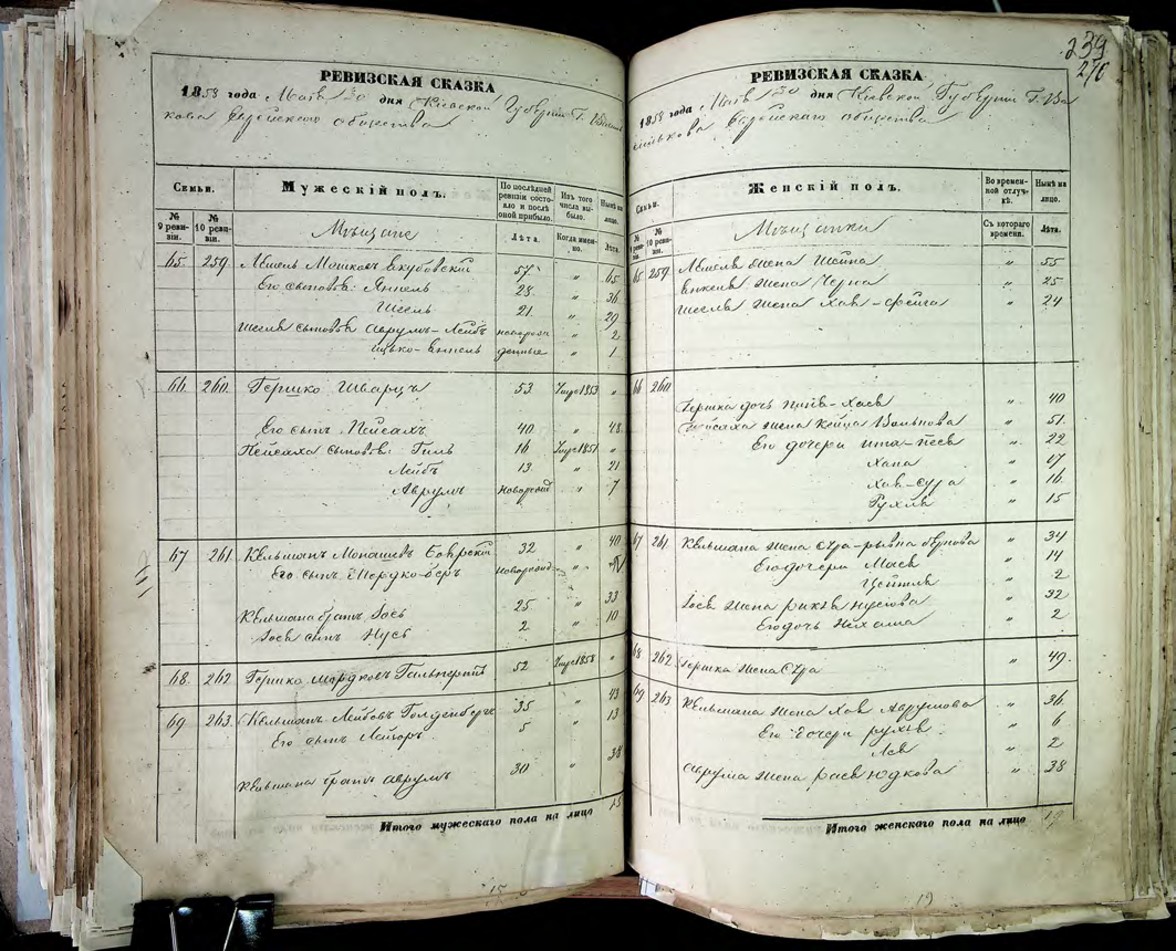 РЕВИЗСКАЯ СКАЗКА
1858 года Мая 20 дня Кіевской Губерніи Г. Василь
кова Еврейскаго общества
Семьи.
Мужескій полъ.
По послѣдней ревизіи состояло и послѣ оной прибыло.
Изъ того числа выбыло.
Нынѣ на лицо.
№ 9 ревизіи.
№ 10 ревизіи.
Мѣщане
Лѣта.
Когда именно.
Лѣта.
65. 259. Мошковъ 57 " 65
Его сыновья: Янкель 28. " 36
21. " 29
сыновья Аврумъ-Лейбъ новорож " 2
Ицько- денные " 1
66. 260. Гершко Шварцъ 53. Умре 1853 "
Его сынъ Пейсахъ 40. " 48.
Пейсаха сыновья: Гиль 16 Умре 1851 "
Лейбъ 13. " 21
Аврумъ новорожд " 7
67 261. Кельманъ 32 " 40
Его сынъ Мордко-Беръ новорожд " "
Кельмана братъ Іось 25 " 33
Іося сынъ Нусь 2 " 10
68. 262 Гершко Мордковъ Гальперинъ 52 Умре 1858 "
69. 263. Кельманъ Лейбовъ Голденбергъ 35 " 43
Его сынъ 5 " 13
Кельмана братъ Аврумъ 30 " 38
Итого мужескаго пола на лицо 15
15
239
270
РЕВИЗСКАЯ СКАЗКА
1858 года Мая 20 дня Кіевской Губерніи Г. Ва
силькова Еврейскаго общества
Семьи.
Женскій полъ.
Во временной отлучкѣ.
Нынѣ на лицо.
№ 9 ревизіи.
№ 10 ревизіи.
Мѣщанки
Съ котораго времени.
Лѣта.
65 259. жена Шейна " 55
Янкеля жена Черна " 25
жена Хая-Фейга " 24
66 260
Гершка дочь " 40
Пейсаха жена " 51.
Его дочери " 22
Хана " 17
Хая-Сура " 16.
Рухля " 15
67 261. Кельмана жена Сура-Рывка " 34
Его дочери Мася " 14
Цейтля " 2
Іося жена Ривка Нусiова " 32
Его дочь Нехама " 2
68 262. Гершка жена Сура " 49.
69 263 Кельмана жена Хая Аврумова " 36.
Его дочери Рухля " 6
Лея " 2
Аврума жена Рася Юдкова " 38
Итого женскаго пола на лицо 19
19